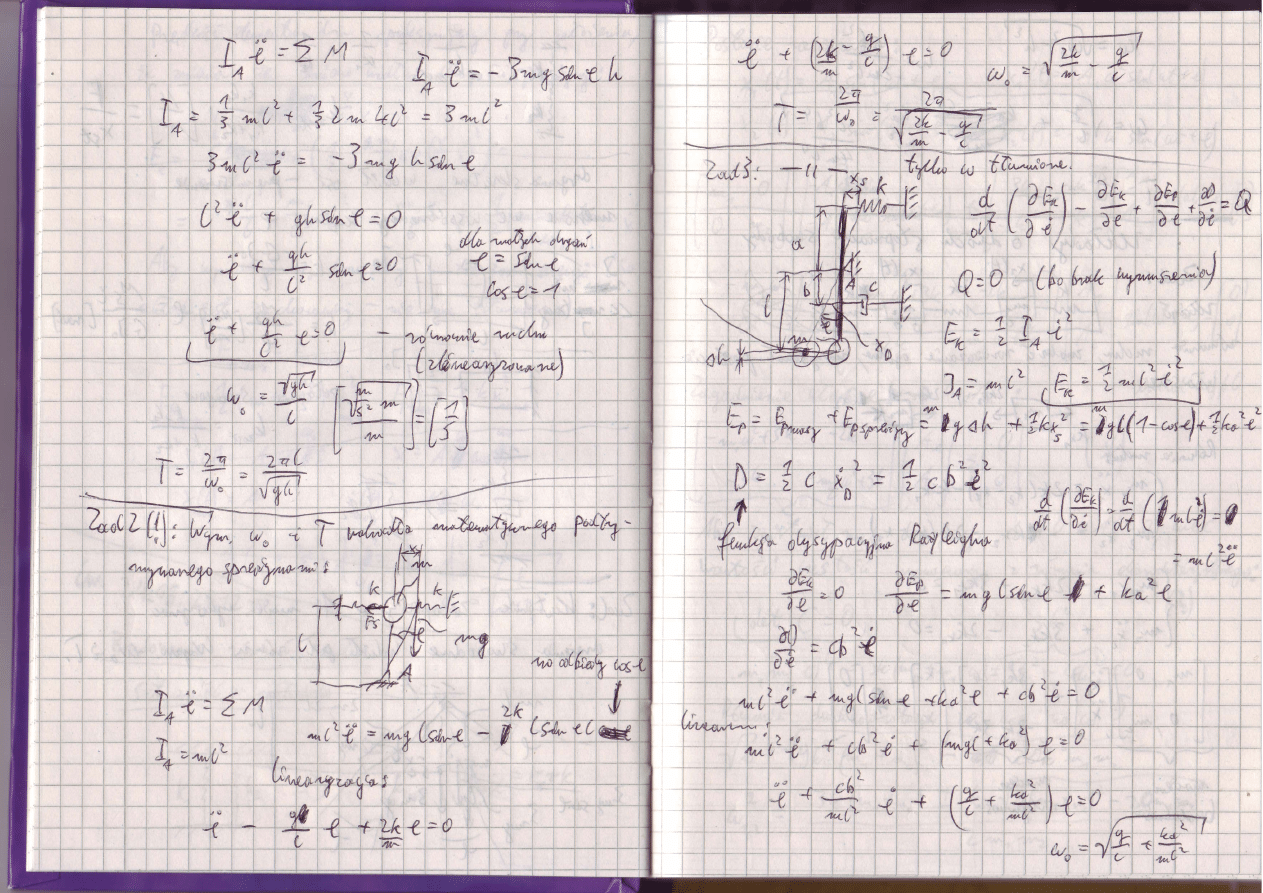 I_A ë = Σ M
I_A ë = - 3mg sin e h
I_A = 1/3 ml² + 1/3 2m 4l² = 3ml²
3ml² ë = - 3mg h sin e
l² ë + gh sin e = 0
dla małych drgań
e = sin e
cos e = 1
ë + gh/l² sin e = 0
ë + gh/l² e = 0 - równanie ruchu
(zlinearyzowane)
ω₀ = √gh/l [√(m/s² m)/m] = [1/s]
T = 2π/ω₀ = 2πl/√gh
Zad 2 (!): Wyzn. ω₀ i T wahadła matematycznego podtrzy-
mywanego sprężynami:
x
m
k
k
Fs
l
e
mg
A
I_A ë = Σ M
I_A = ml²
no odbiega cos e
ml² ë = mgl sin e - 2k l sin e l
linearyzacja:
ë - g/l e + 2k/m e = 0
ë + (2k/m - g/l) e = 0
ω₀ = √(2k/m - g/l)
T = 2π/ω₀ = 2π/√(2k/m - g/l)
Zad 3: - 11 - tylko w tłumione.
x_s
k
a
A
b
c
l
e
m
Δh
x_D
d/dt (∂E_k/∂ė) - ∂E_k/∂e + ∂E_p/∂e + ∂D/∂ė = Q
Q = 0 (bo brak wymuszenia)
E_k = 1/2 I_A ė²
I_A = ml² E_k = 1/2 ml² ė²
E_p = E_p masy + E_p sprężyny = mgΔh + 1/2 k x_s² = mgl(1 - cos e) + 1/2 ka² e²
D = 1/2 c ẋ_D² = 1/2 cb² ė²
funkcja dysypacyjna Rayleigha
d/dt (∂E_k/∂ė) = d/dt (ml² ė) =
= ml² ë
∂E_k/∂e = 0 ∂E_p/∂e = mgl sin e + ka² e
∂D/∂ė = cb² ė
ml² ë + mgl sin e + ka² e + cb² ė = 0
linearn:
ml² ë + cb² ė + (mgl + ka²) e = 0
ë + cb²/ml² ė + (g/l + ka²/ml²) e = 0
ω₀ = √(g/l + ka²/ml²)